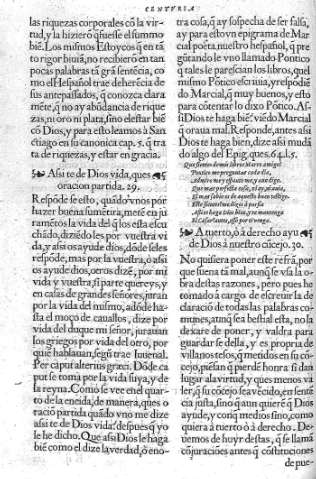 CENTVRIA
las riquezas corporales cõ la vir-
tud, y la hizierõ q̃ fuesse el summo
biẽ. Los mismos Estoycos q̃ en tã
to rigor biuiã, no recibierõ en tan
pocas palabras tã grã sentẽcia, co
mo el Hespañol trae de herẽcia de
sus antepassados, q̃ conozca clara
mẽte, q̃ no ay abũdancia de rique
zas, ni oro ni plata, sino el estar biẽ
cõ Dios, y para esto leamos à San
ctiago en su canonica cap. 5. q̃ tra
ta de riquezas, y el estar en gracia.
Assi te de Dios vida, ques
oracion partida. 29.
Respõde se esto, quãdo vnos por
hazer buena sumẽtira, metẽ en ju
ramẽtos la vida del q̃ los esta escu
chãdo, diziẽdo les por vuestra vi
da, y assi os ayude dios, dõde seles
respõde, mas por la vuestra, o assi
os ayude dios, oeros dizẽ, por mi
vida y vuestra, si parte quereys, y
en casas de grandes señores, juran
por la vida del mismo, adõde ha-
sta el moço de cauallos, dize por
vida del duque mi señor, jurauan
los griegos por vida del otro, por
quiẽ hablauan, segũ trae Iuuenal.
Per caput alterius græci. Dõde ca
put se toma por la vida suya, y de
la reyna. Como se vee en el quar-
to de la eneida, de manera, ques o
raciõ partida quãdo vno me dize
assi te de Dios vida, despues q̃ yo
le he dicho. Que assi Dios le haga
biẽ como el dize la verdad, õ eno-
tra cosa, q̃ ay sospecha de ser falsa,
ay para esto vn epigrama de Mar
cial poëta, nuestro hespañol, q̃ pre
gũtando le vno llamado Pontico
q̃ tales le parescian los libros, quel
mismo Põtico escriuia, y respõdiẽ
do Marcial, q̃ muy buenos, y esto
para cõtentar lo dixo Põtico. As-
si Dios te haga biẽ viẽdo Marcial
q̃ oraua mal. Responde, antes assi
Dios te haga bien, dize assi mudã
do algo del Epig. ques 64. l. 5.
Que sientes demis libros Marco amigo?
Pontico me preguntas cada dia,
Que mas perfecta cosa, ni ay, ni auia,
A tuerto, ò à derecho ayu
de Dios à nuestro cõcejo. 30.
No quisiera poner este refrã, por
que suena tã mal, aunq̃ se vsa la o-
bra destas razones, pero pues he
tomado à cargo de escreuir la de
claraciõ de todas las palabras co-
munes, aunq̃ sea bestial esta, no la
dexare de poner, y valdra para
guardar se della, y es propria de
villanos tesos, q̃ metidos en su cõ-
cejo, piẽsan q̃ pierdẽ honra si dan
lugar ala virtud, y ques menos va
ler, q̃ su cõcejo sea vẽcido, en sentẽ
cia justa, sino q̃ aun quierẽ q̃ Dios
ayude, y coriq̃ medios sino, como
quiera à tuerto ò à derecho. De-
uemos de huyr destas, q̃ se llamã
cõjuraciões antes q̃ cõstituciones
de pue-